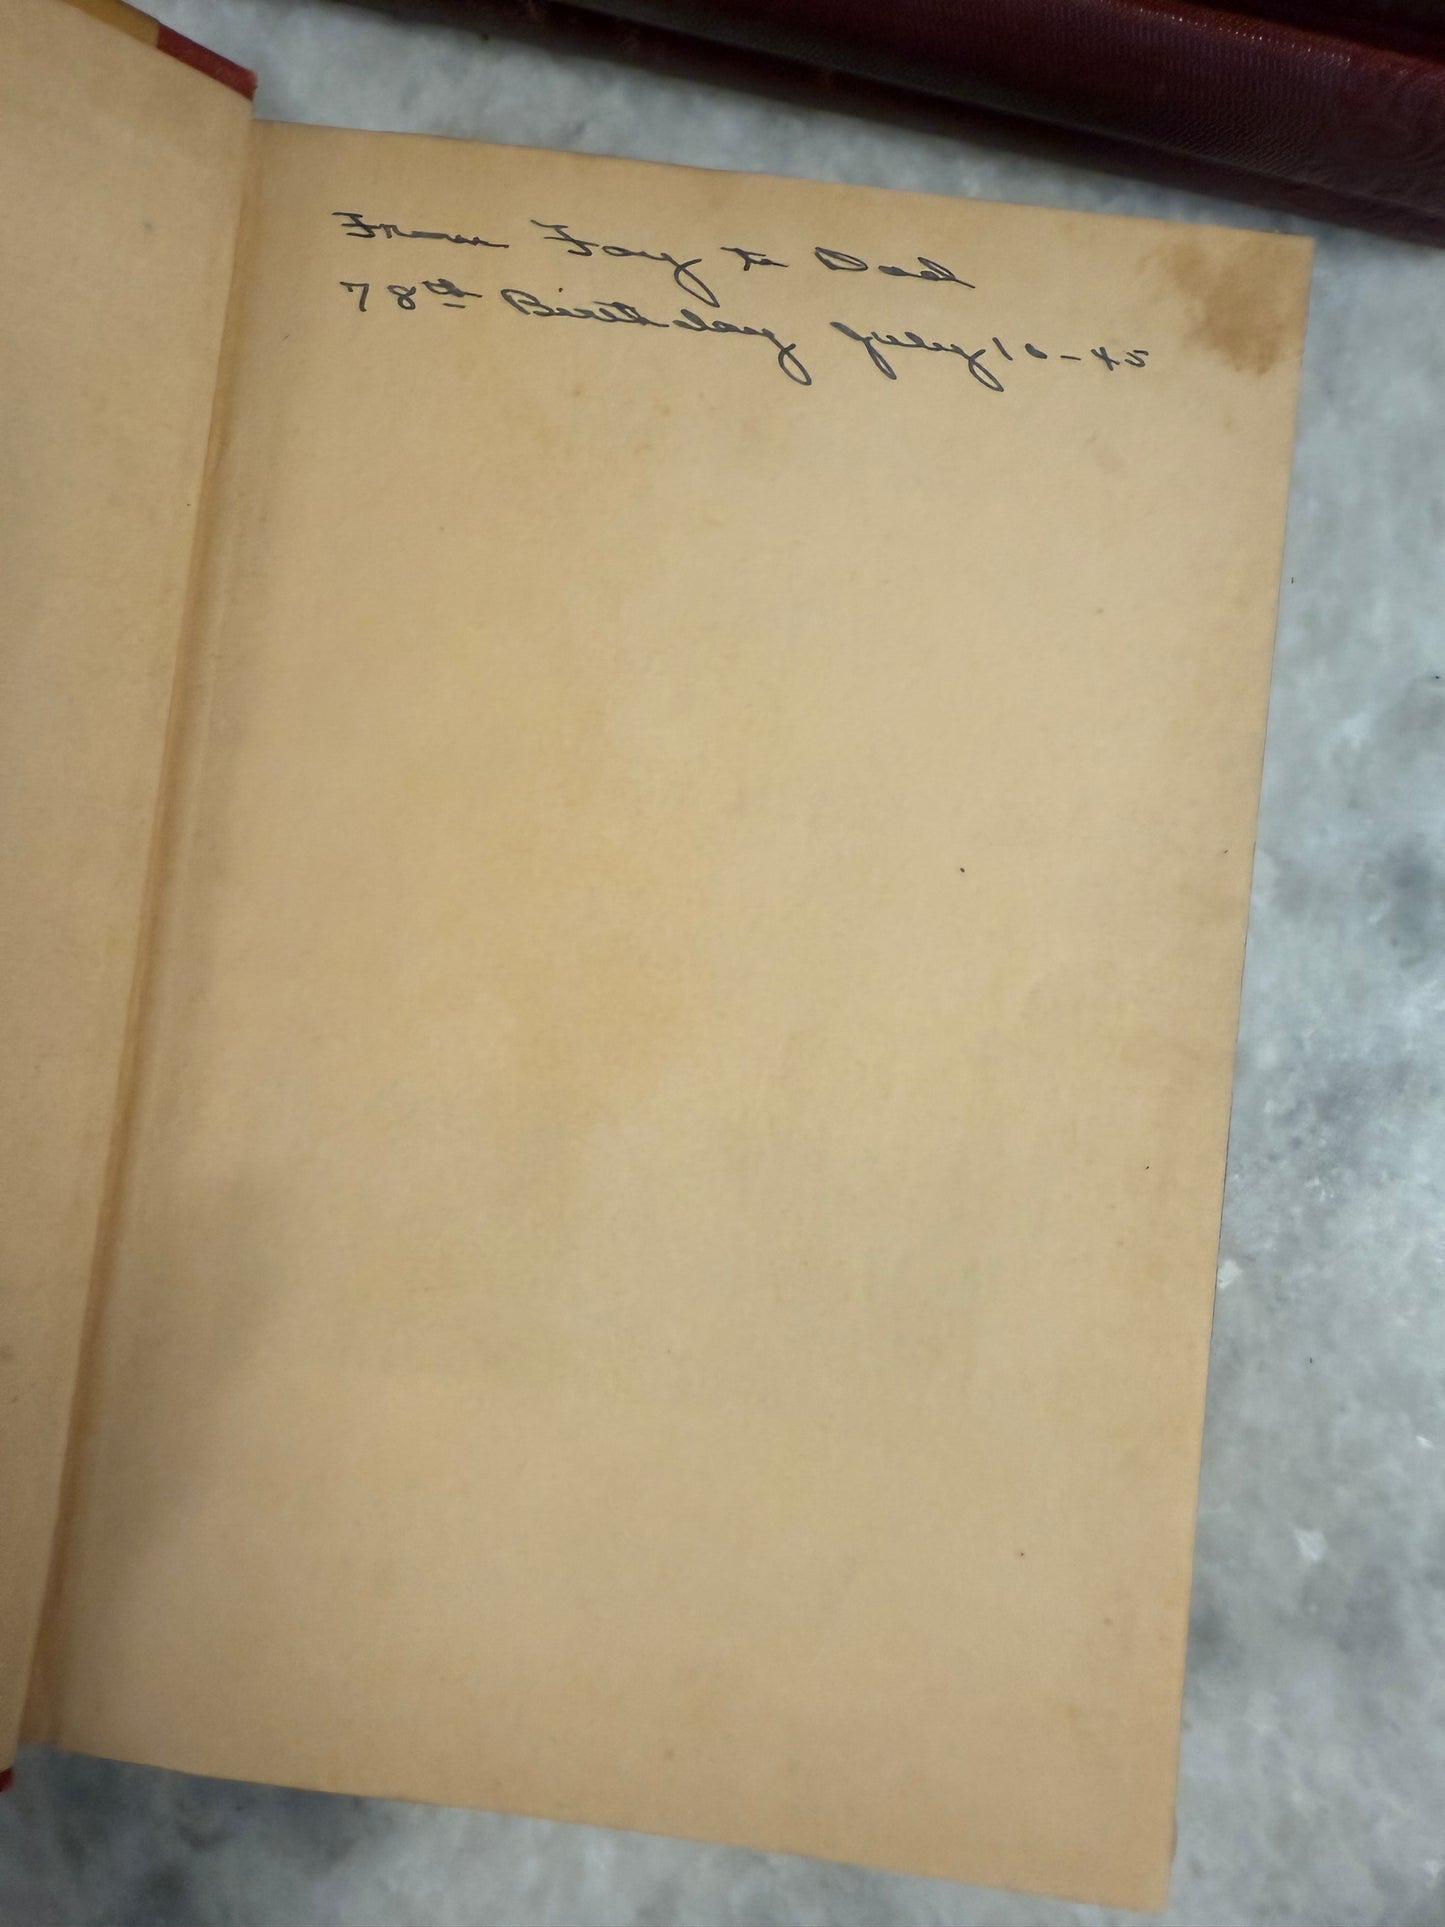 From Fay to Dad
78th Birthday July 16-45